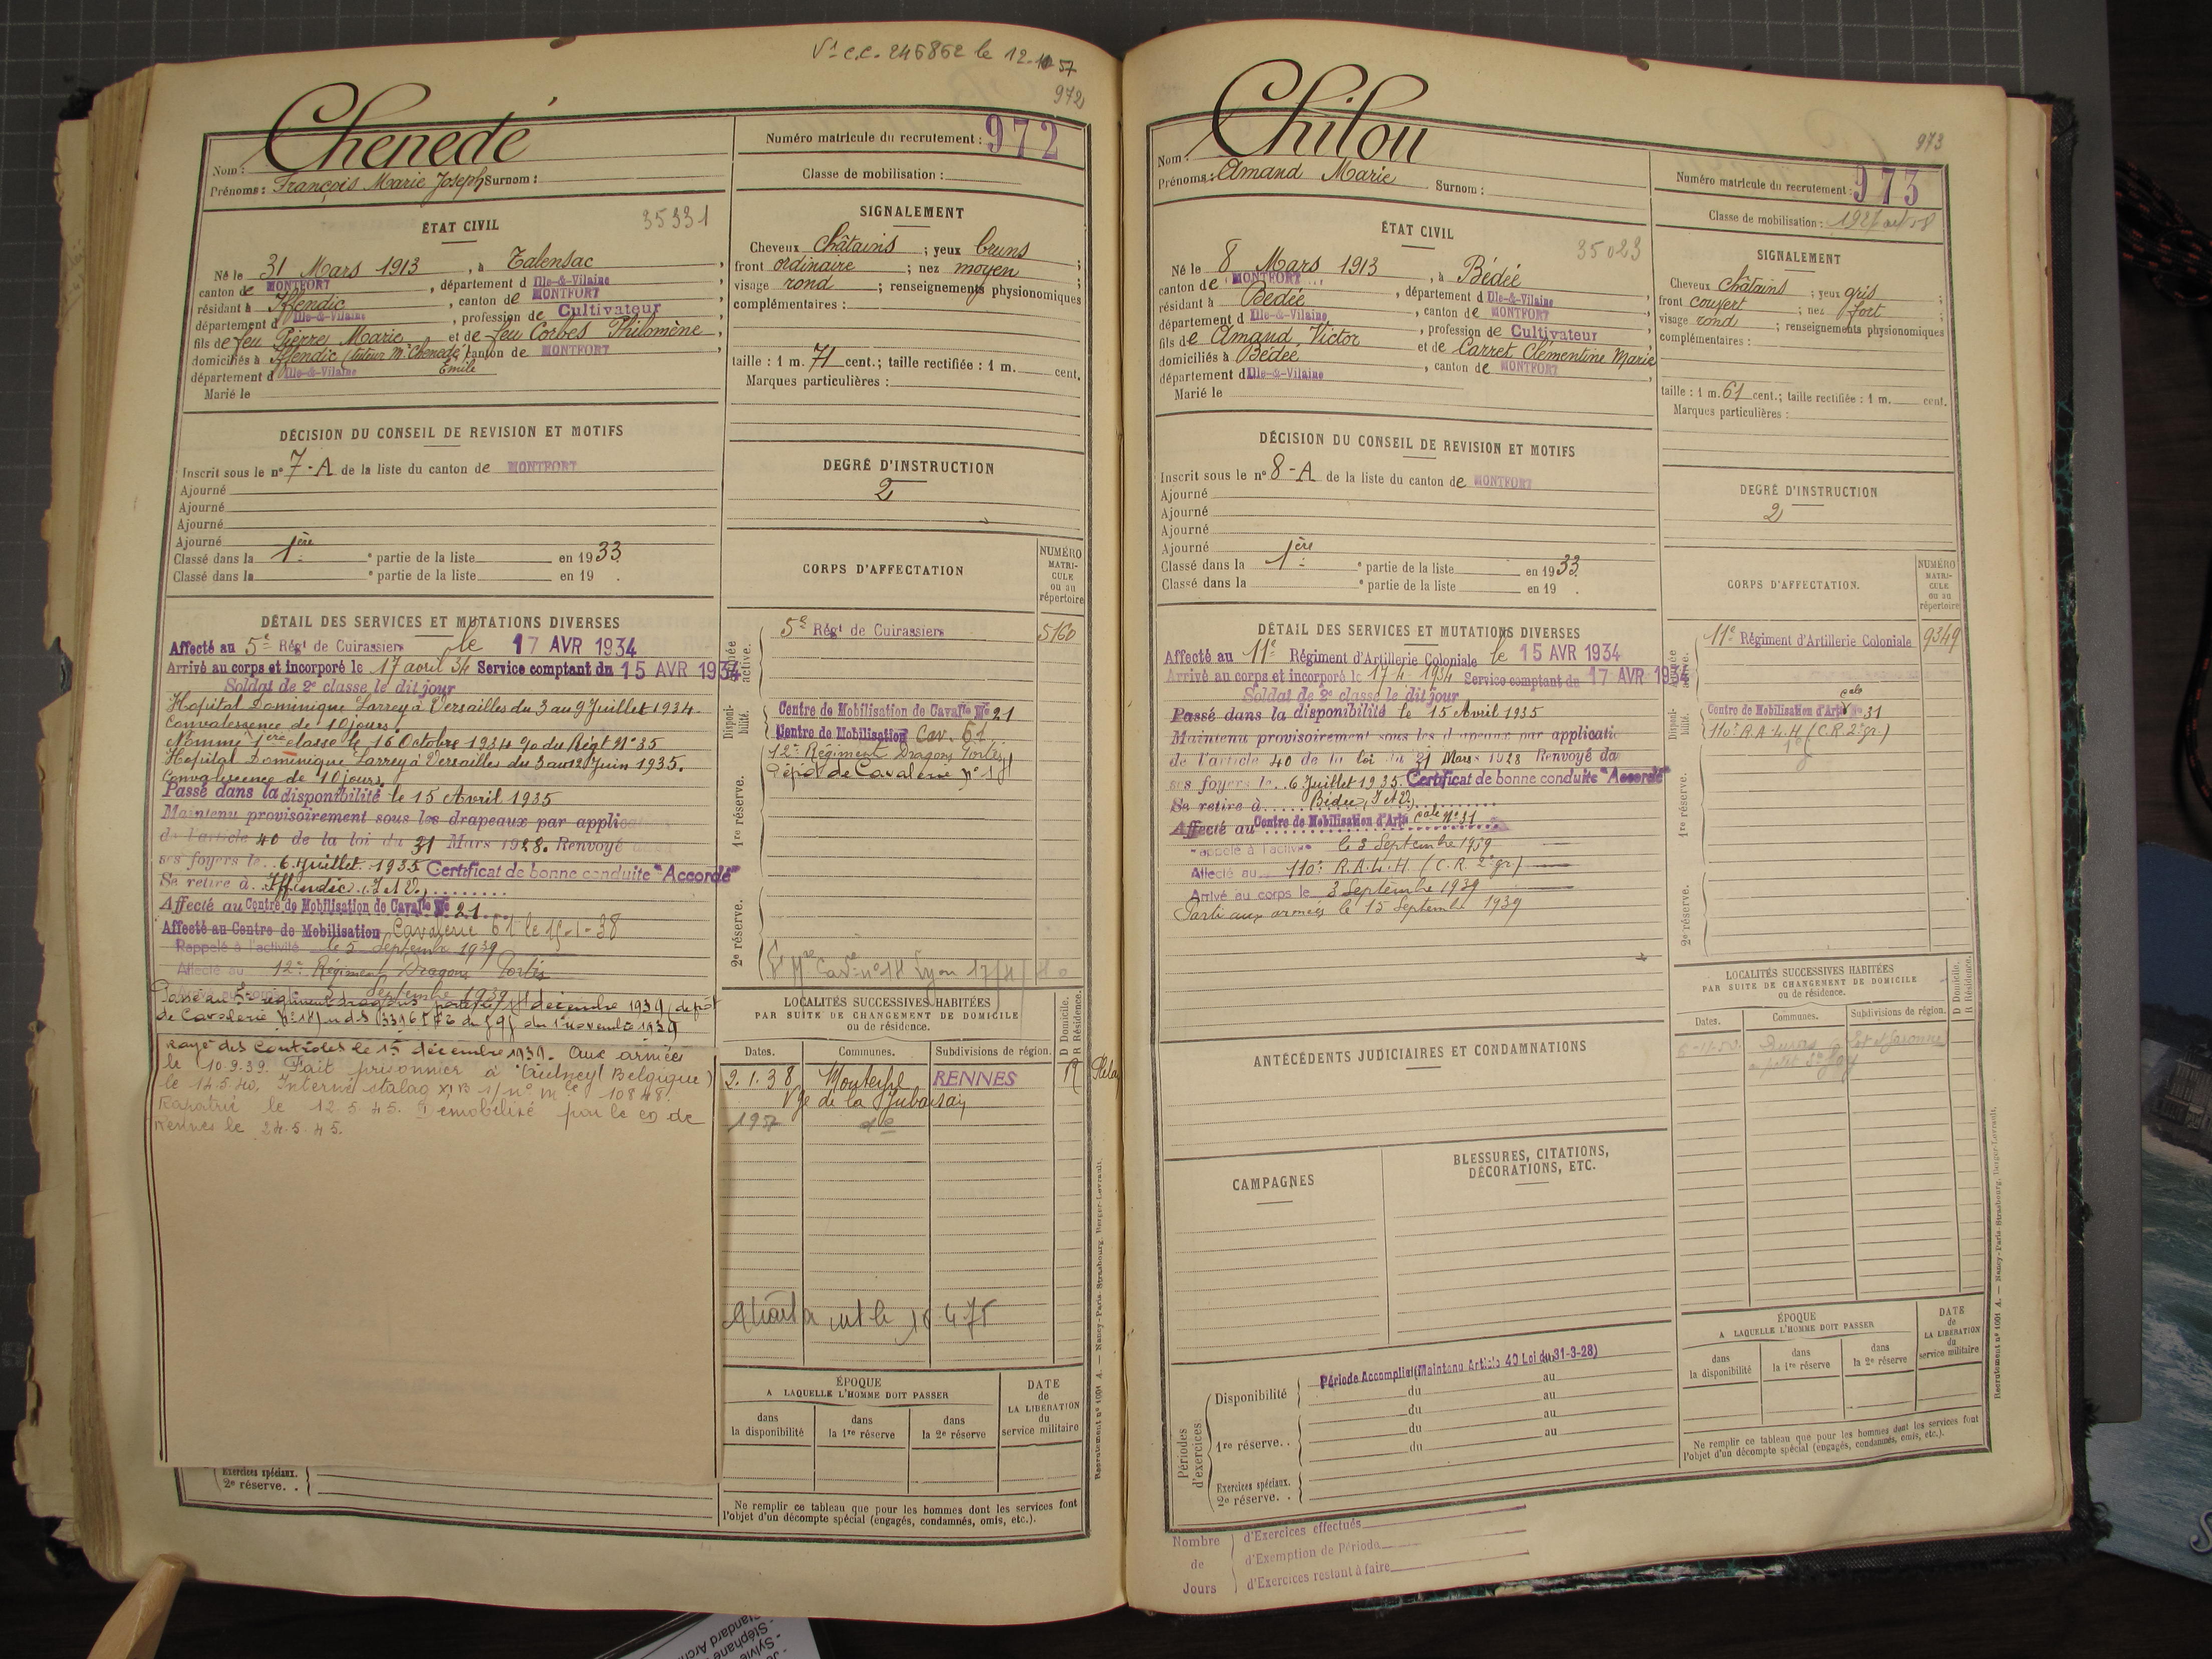 Vt c.c. 246862 le 12.10 57
972
Chenedé
Nom :
Prénoms : François Marie Joseph Surnom :
Numéro matricule du recrutement : 972
Classe de mobilisation :
ÉTAT CIVIL
35331
Né le 31 Mars 1913, à Talensac,
canton de MONTFORT, département d Ille-&-Vilaine,
résidant à Iffendic, canton de MONTFORT
département d Ille-&-Vilaine, profession de Cultivateur
fils de feu Pierre Marie et de feu Corbes Philomène,
domiciliés à Iffendic (tuteur Mr Chenedé Emile) canton de MONTFORT,
département d Ille-&-Vilaine
Marié le
SIGNALEMENT
Cheveux châtains ; yeux bruns ;
front ordinaire ; nez moyen ;
visage rond ; renseignements physionomiques
complémentaires :
taille : 1 m. 71 cent.; taille rectifiée : 1 m. cent.
Marques particulières :
DÉCISION DU CONSEIL DE REVISION ET MOTIFS
Inscrit sous le n° 7-A de la liste du canton de MONTFORT
Ajourné
Ajourné
Ajourné
Ajourné
Classé dans la 1ère e partie de la liste en 1933.
Classé dans la e partie de la liste en 19 .
DEGRÉ D'INSTRUCTION
2
DÉTAIL DES SERVICES ET MUTATIONS DIVERSES
Affecté au 5e Régt de Cuirassiers le 17 AVR 1934
Arrivé au corps et incorporé le 17 avril 34 Service comptant du 15 AVR 1934
Soldat de 2e classe le dit jour
Hopital Dominique Larrey à Versailles du 3 au 9 Juillet 1934.
Convalescence de 10 jours.
Nommé 1ère classe le 16 Octobre 1934 o/o du Régt N° 35
Hopital Dominique Larrey à Versailles du 3 au 12 Juin 1935.
Convalescence de 10 jours.
Passé dans la disponibilité le 15 Avril 1935
Maintenu provisoirement sous les drapeaux par application
de l'article 40 de la loi du 31 Mars 1928. Renvoyé dans
ses foyers le 6 Juillet 1935 Certificat de bonne conduite "Accordé"
Se retire à Iffendic (I et V)
Affecté au Centre de Mobilisation de Cavalie N° 21
Affecté au Centre de Mobilisation Cavalerie 61 le 15-1-38
Rappelé à l'activité le 5 Septembre 1939
Affecté au 12e Régiment Dragons Portés
Septembre 1939
Passé au 5e régiment dragons portés 1er décembre 1939 (dépôt
de Cavalerie N° 18)
rayé des contrôles le 15 décembre 1939. Aux armées
le 10.9.39. Fait prisonnier à (Belgique)
le 14.5.40, Interné stalag XI B n° mle 10848.
Rapatrié le 12.5.45. Démobilisé par le CD de
Rennes le 24.5.45.
CORPS D'AFFECTATION
NUMÉRO MATRICULE ou au répertoire
Armée active.
5e Régt de Cuirassiers 5160
Disponibilité.
Centre de Mobilisation de Cavalie N° 21
Centre de Mobilisation Cav. 61
12e Régiment Dragons Portés
Dépôt de Cavalerie N° 18
1re réserve.
2e réserve.
LOCALITÉS SUCCESSIVES HABITÉES
PAR SUITE DE CHANGEMENT DE DOMICILE
ou de résidence.
D Domicile. R Résidence.
Dates. Communes. Subdivisions de région.
2.1.38 Monterfil RENNES R
Vge de la
195
ÉPOQUE
A LAQUELLE L'HOMME DOIT PASSER
dans la disponibilité
dans la 1re réserve
dans la 2e réserve
DATE de LA LIBÉRATION du service militaire
Exercices spéciaux.
2e réserve. .
Ne remplir ce tableau que pour les hommes dont les services font
l'objet d'un décompte spécial (engagés, condamnés, omis, etc.).
Recrutement n° 1001 A. — Nancy-Paris-Strasbourg, Berger-Levrault.
973
Chilou
Nom :
Prénoms : Amand Marie Surnom :
Numéro matricule du recrutement : 973
Classe de mobilisation : 1927
ÉTAT CIVIL
35023
Né le 8 Mars 1913, à Bédée
canton de MONTFORT, département d Ille-&-Vilaine,
résidant à Bédée, canton de MONTFORT
département d Ille-&-Vilaine, profession de Cultivateur
fils de Amand, Victor et de Carret Clémentine Marie
domiciliés à Bédée, canton de MONTFORT,
département d Ille-&-Vilaine
Marié le
SIGNALEMENT
Cheveux châtains ; yeux gris ;
front couvert ; nez fort ;
visage rond ; renseignements physionomiques
complémentaires :
taille : 1 m. 61 cent.; taille rectifiée : 1 m. cent.
Marques particulières :
DÉCISION DU CONSEIL DE REVISION ET MOTIFS
Inscrit sous le n° 8-A de la liste du canton de MONTFORT
Ajourné
Ajourné
Ajourné
Ajourné
Classé dans la 1ère e partie de la liste en 1933.
Classé dans la e partie de la liste en 19 .
DEGRÉ D'INSTRUCTION
2
DÉTAIL DES SERVICES ET MUTATIONS DIVERSES
Affecté au 11e Régiment d'Artillerie Coloniale le 15 AVR 1934
Arrivé au corps et incorporé le 17 4 1934 Service comptant du 17 AVR 1934
Soldat de 2e classe le dit jour
Passé dans la disponibilité le 15 Avril 1935
Maintenu provisoirement sous les drapeaux par applicatio
de l'article 40 de la loi du 31 Mars 1928 Renvoyé da
ses foyers le 6 Juillet 1935. Certificat de bonne conduite "Accordé"
Se retire à Bédée, (I et V)
Affecté au Centre de Mobilisation d'Artie cale N° 31
Rappelé à l'activité le 3 Septembre 1939
Affecté au 110e R.A.L.H (C.R. 2e gr.)
Arrivé au corps le 3 Septembre 1939
Parti aux armées le 15 Septembre 1939
CORPS D'AFFECTATION.
NUMÉRO MATRICULE ou au répertoire
Armée active.
11e Régiment d'Artillerie Coloniale 9349
Disponibilité.
Centre de Mobilisation d'Artie cale N° 31
110e R.A.L.H (C.R. 2e gr.)
1re réserve.
2e réserve.
ANTÉCÉDENTS JUDICIAIRES ET CONDAMNATIONS
LOCALITÉS SUCCESSIVES HABITÉES
PAR SUITE DE CHANGEMENT DE DOMICILE
ou de résidence.
D Domicile. R Résidence.
Dates. Communes. Subdivisions de région.
Duras Lot et Garonne
CAMPAGNES
BLESSURES, CITATIONS,
DÉCORATIONS, ETC.
Périodes d'exercices
Disponibilité
Période Accomplie (Maintenu Article 40 Loi du 31-3-28)
du au
du au
1re réserve. .
du au
du au
Exercices spéciaux.
2e réserve. .
ÉPOQUE
A LAQUELLE L'HOMME DOIT PASSER
dans la disponibilité
dans la 1re réserve
dans la 2e réserve
DATE de LA LIBÉRATION du service militaire
Ne remplir ce tableau que pour les hommes dont les services font
l'objet d'un décompte spécial (engagés, condamnés, omis, etc.).
Recrutement n° 1001 A. — Nancy-Paris-Strasbourg, Berger-Levrault.
Nombre de Jours
d'Exercices effectués
d'Exemption de Période
d'Exercices restant à faire